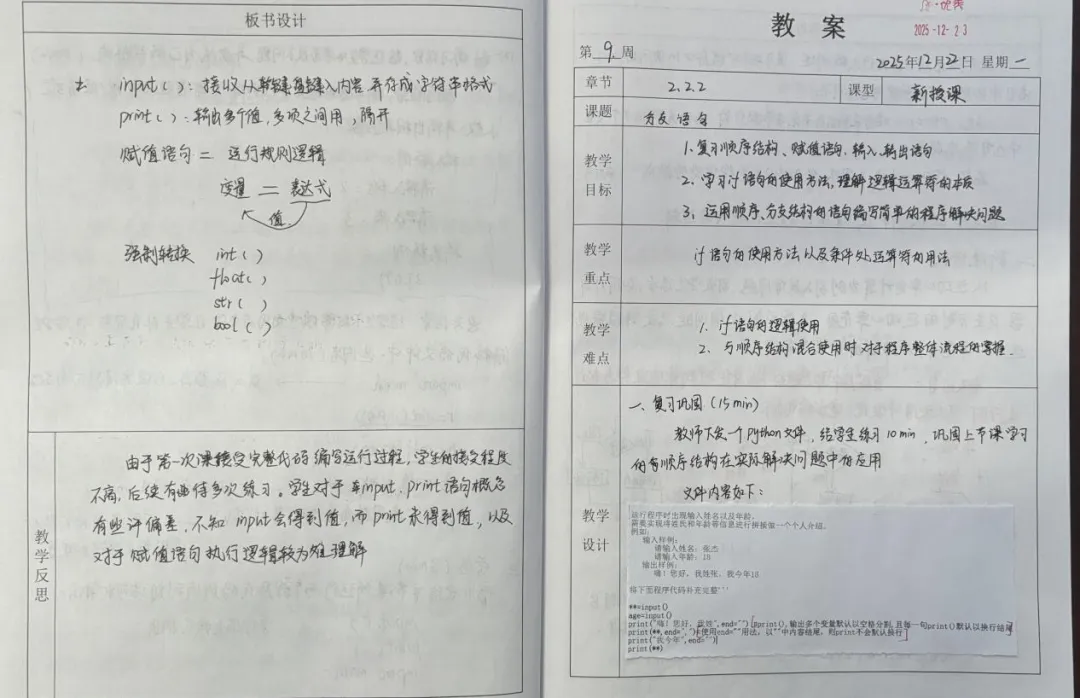 板书设计
input()：接收从键盘键入内容并存成字符串格式
print()：输出多个值，多项之间用，隔开
赋值语句 = 运行规则逻辑
变量 = 表达式
值
强制转换 int()
float()
str()
bool()
教学反思
由于第一次课接受完整代码编写运行过程，学生的接受程度
不高，后续有由待多次练习。学生对于input、print语句概念
有些许偏差，不知input会得到值，而print未得到值，以及
对于赋值语句执行逻辑较为难理解
教案
2025-12-23
第 9 周
2025年12月22日 星期一
章节 2.2.2 课型 新授课
课题 分支语句
教学目标
1. 复习顺序结构、赋值语句、输入、输出语句
2. 学习if语句的使用方法，理解逻辑运算符的本质
3. 运用顺序、分支结构的语句编写简单的程序解决问题
教学重点
if语句的使用方法以及条件处运算符的用法
教学难点
1. if语句的逻辑使用
2. 与顺序结构混合使用时对于程序整体流程的掌握.
教学设计
一、复习巩固（15min）
教师下发一个python文件，给学生练习10min，巩固上节课学习
的有顺序结构在实际解决问题中的应用
文件内容如下：
运行程序时出现输入姓名以及年龄。
需要实现将姓氏和年龄等信息进行拼接做一个个人介绍。
例如：
输入样例：
请输入姓名：张杰
请输入年龄：18
输出样例：
嗨！您好，我姓张，我今年18
将下面程序代码补充完整'''
**=input()
age=input()
print("嗨！您好，我姓",end="")[#print()，输出多个变量默认以空格分割，且每一句print()默认以换行结尾
print(**,end=",")#使用end=""用法，以""中内容结尾，则print不会默认换行]
print("我今年",end="")
print(**)